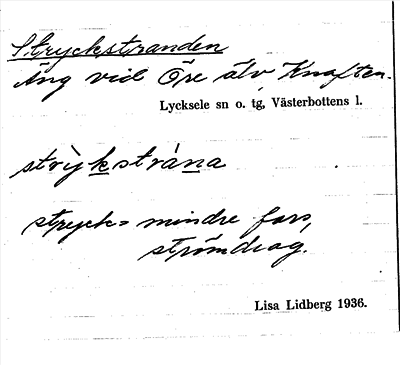 Stryckstranden
Äng vid Öre älv, Knaften.
Lycksele sn o. tg, Västerbottens l.
strỳkstrána
stryck = mindre fors,
strömdrag.
Lisa Lidberg 1936.